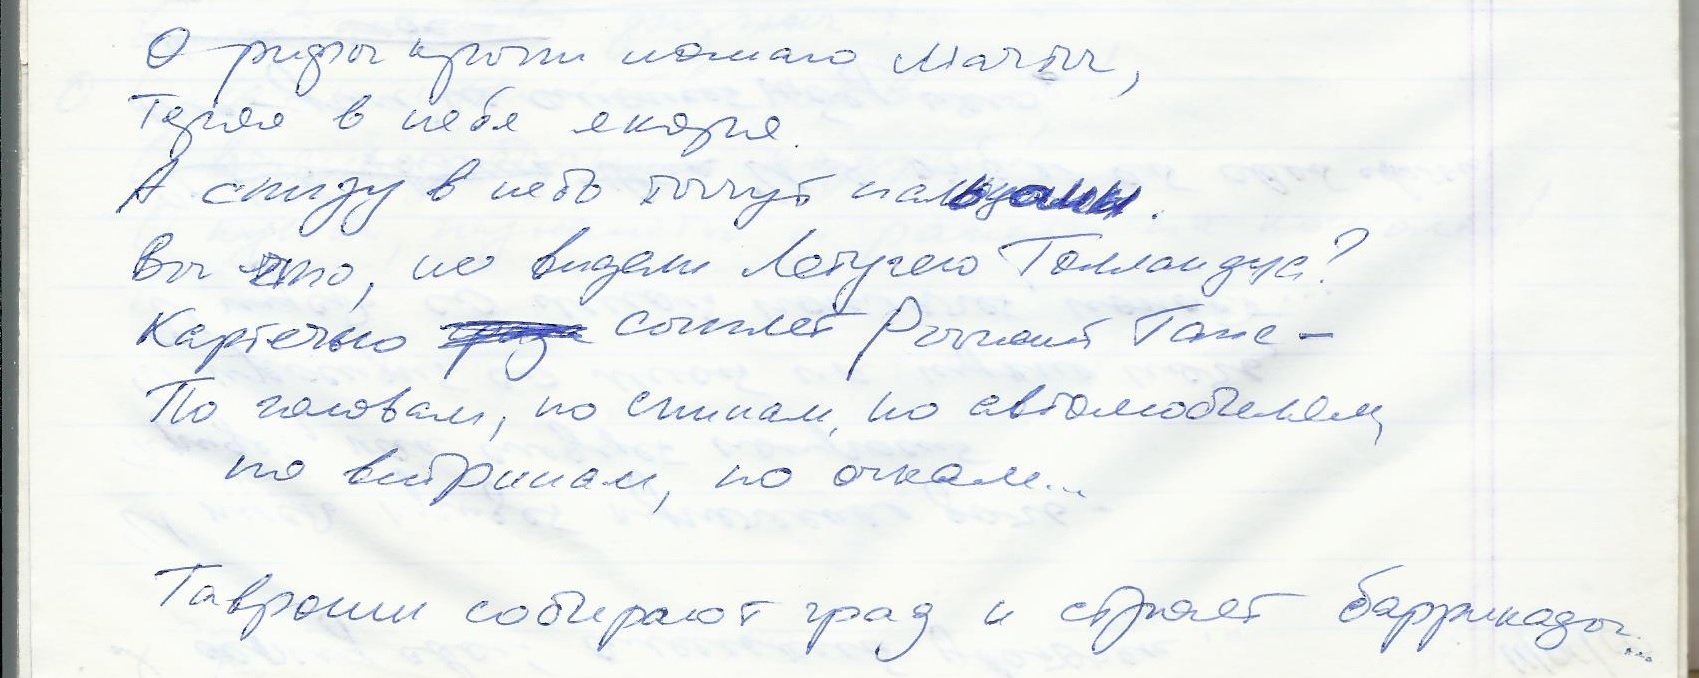 О рифы крыш ломаю мачты,
Теряя в небе якоря.
А снизу в небо тычут пальцами.
Вы что, не видели Летучего Голландца?
Картечью сыплет Рыжий Ганс –
По головам, по спинам, по автомобилям,
по витринам, по очкам...
Гавроши собирают град и строят баррикады...